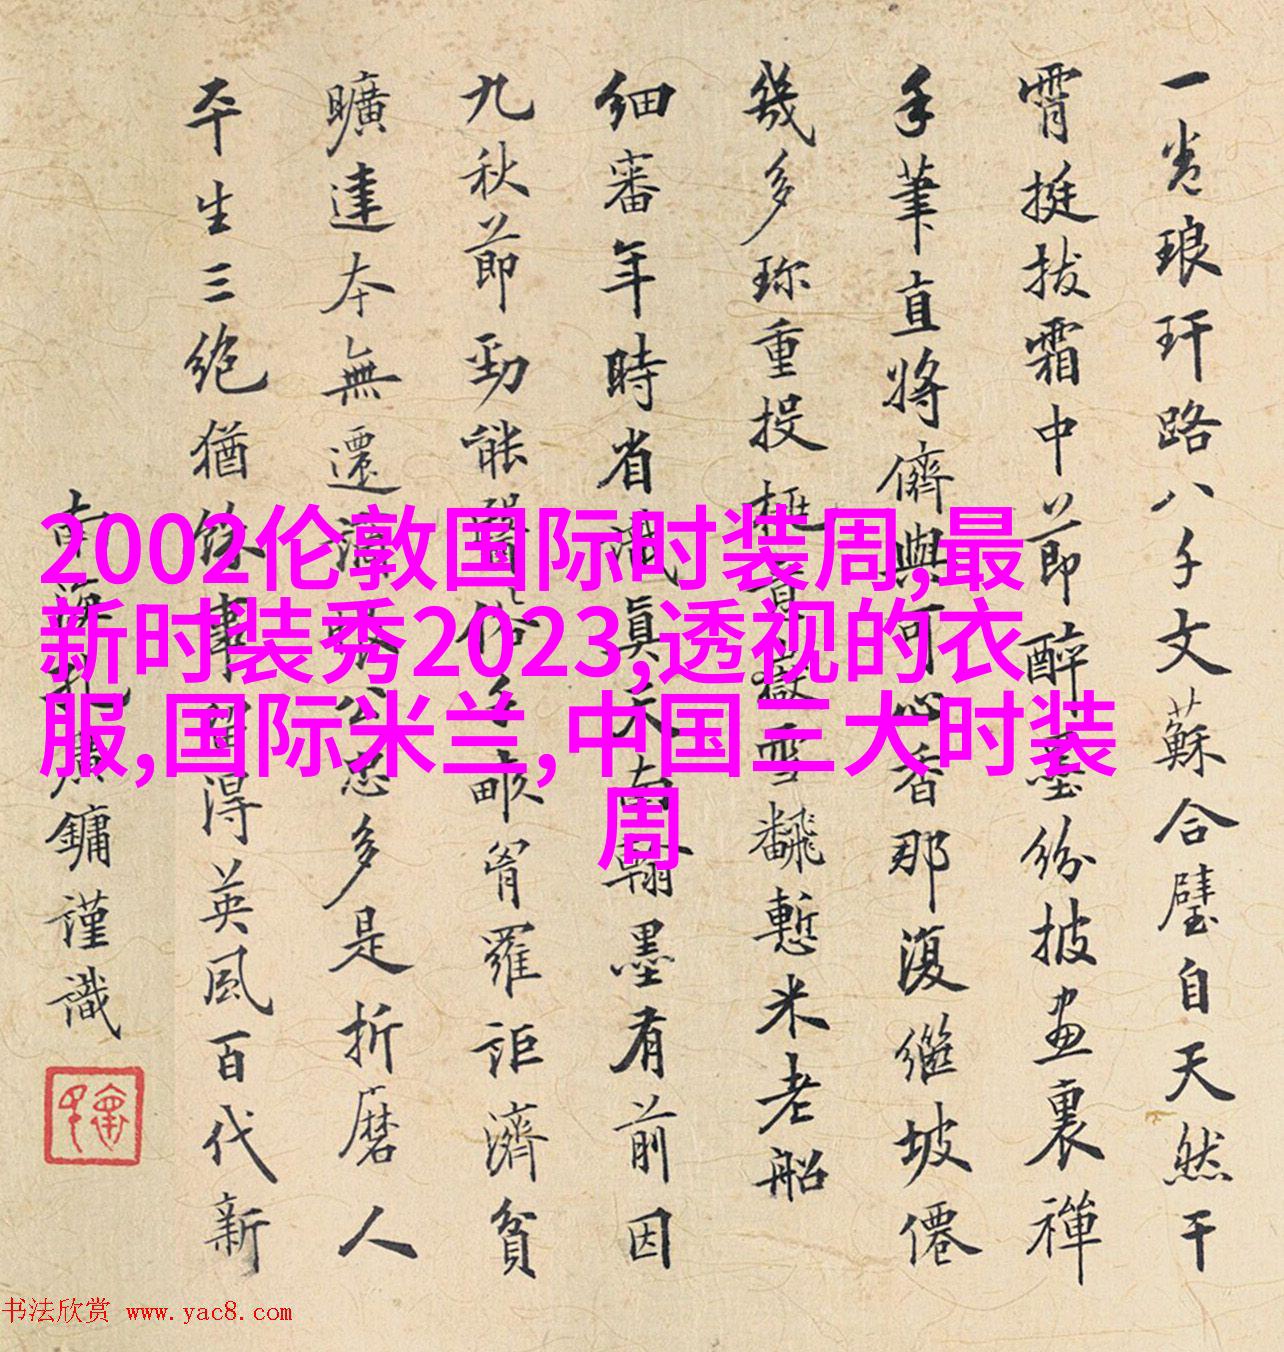 一卷琅玕路八千文蘇合璧自天然干
霄挺拔霜中節醉墨紛披畫裏禪
手筆直將儕與可心香那復繼坡僊
幾多珍重投雪飜慙米老船
細審年時省識真天南翰墨有前因
九秋節勁能醫俗千畝胷羅詎濟貧
曠達本無還公忠多是折磨人
平生三絕猶餘事留得英風百代新
南海孔廣鏞謹識
2002伦敦国际时装周,最
新时装秀2023,透视的衣
服,国际米兰,中国三大时装
周
书法欣赏 www.yac8.com